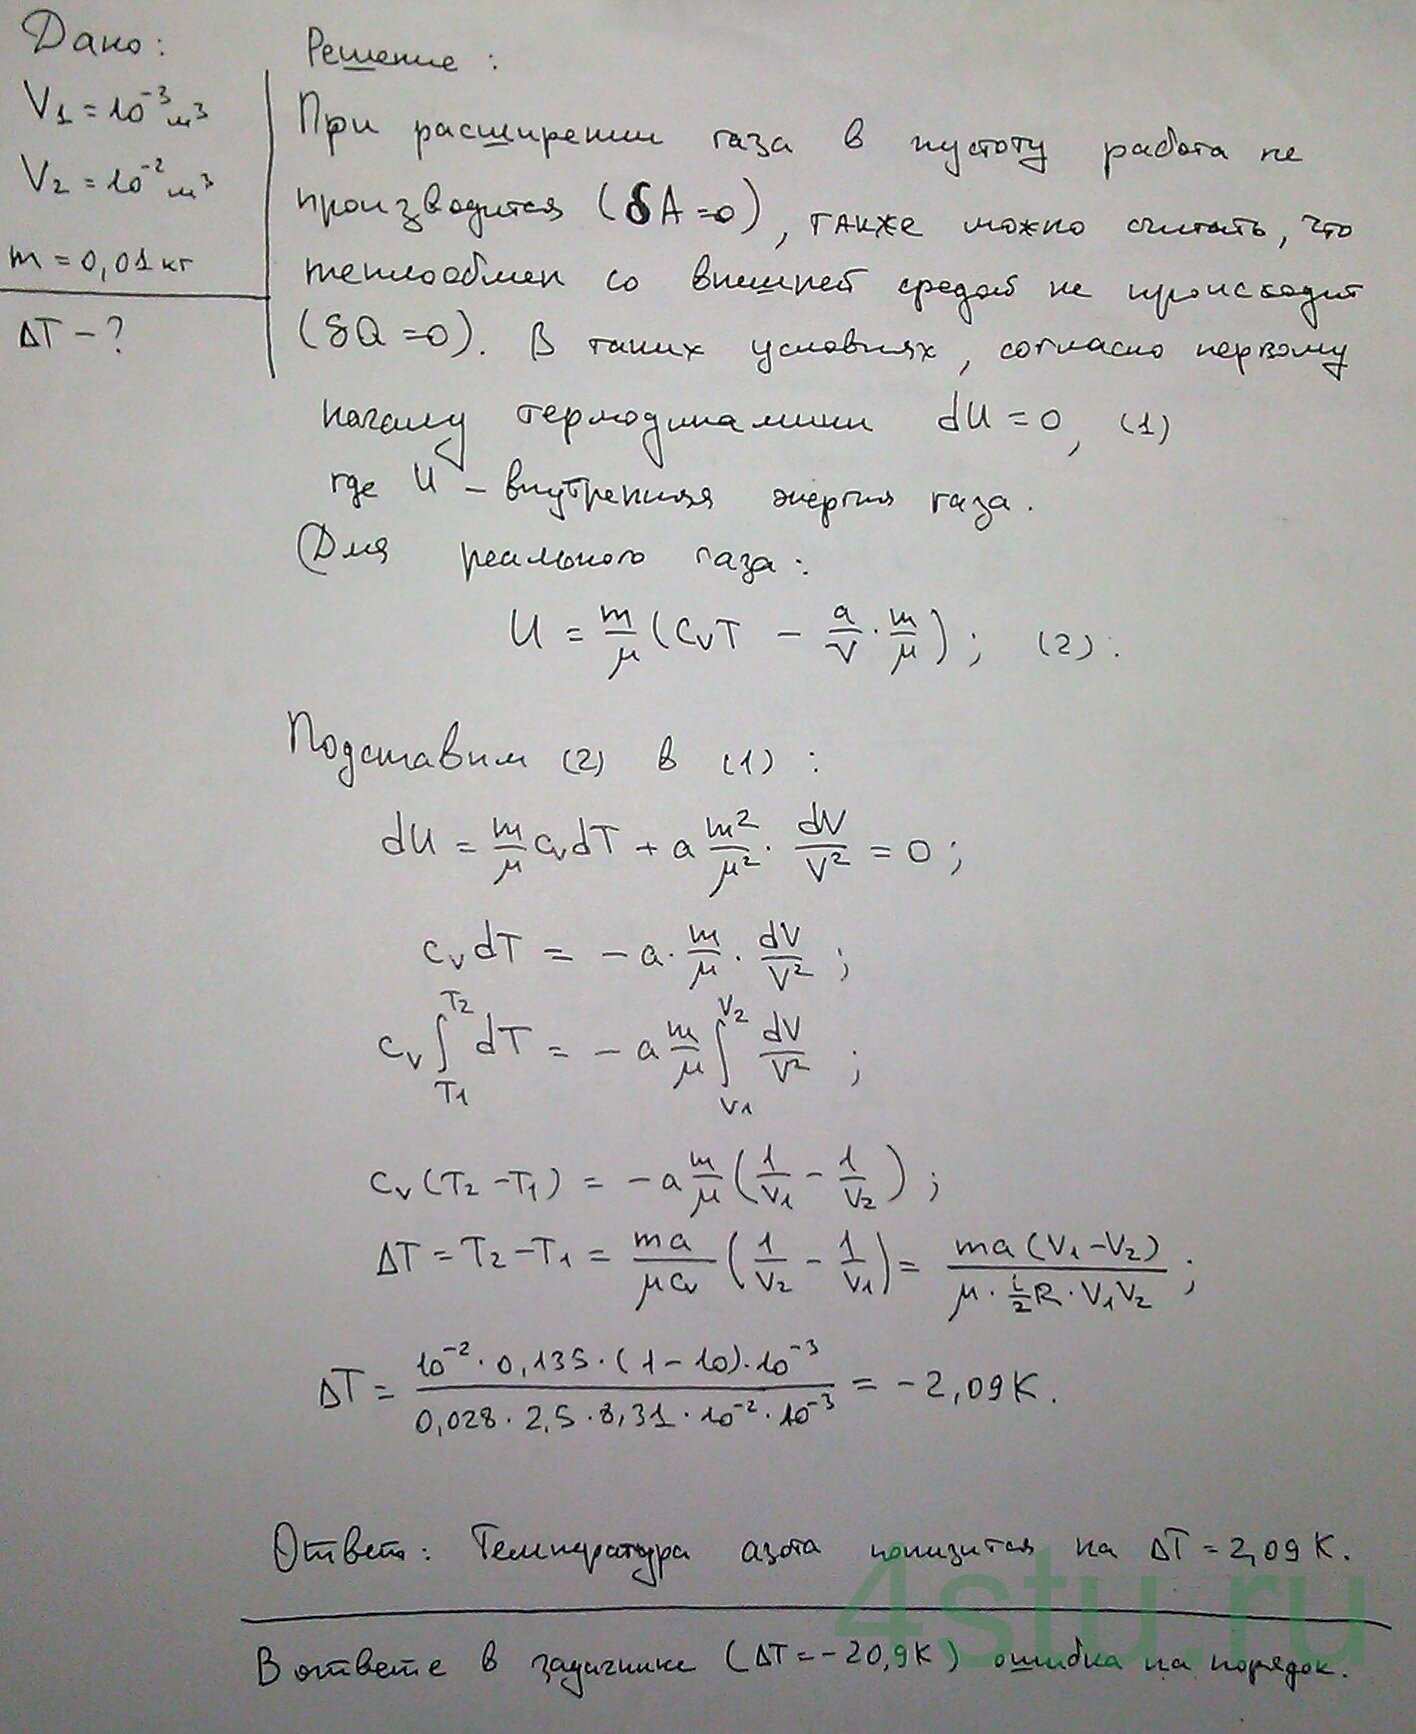 Дано:
V₁ = 10⁻³ м³
V₂ = 10⁻² м³
m = 0,01 кг
ΔT − ?
Решение:
При расширении газа в пустоту работа не
производится (δA=0), также можно считать, что
теплообмен со внешней средой не происходит
(δQ=0). В таких условиях, согласно первому
началу термодинамики dU = 0, (1)
где U – внутренняя энергия газа.
Для реального газа:
U = m/μ (CᵥT − a/V · m/μ); (2).
Подставим (2) в (1):
dU = m/μ cᵥdT + a m²/μ² · dV/V² = 0;
cᵥdT = −a · m/μ · dV/V²;
cᵥ ∫_{T₁}^{T₂} dT = −a m/μ ∫_{V₁}^{V₂} dV/V²;
cᵥ(T₂ − T₁) = −a m/μ (1/V₁ − 1/V₂);
ΔT = T₂ − T₁ = ma/μcᵥ (1/V₂ − 1/V₁) = ma(V₁ − V₂)/μ · i/2 R · V₁V₂;
ΔT = 10⁻² · 0,135 · (1 − 10) · 10⁻³ / 0,028 · 2,5 · 8,31 · 10⁻² · 10⁻³ = −2,09 К.
Ответ: Температура азота понизится на ΔT = 2,09 К.
В ответе в задачнике (ΔT = −20,9К) ошибка на порядок.
4stu.ru